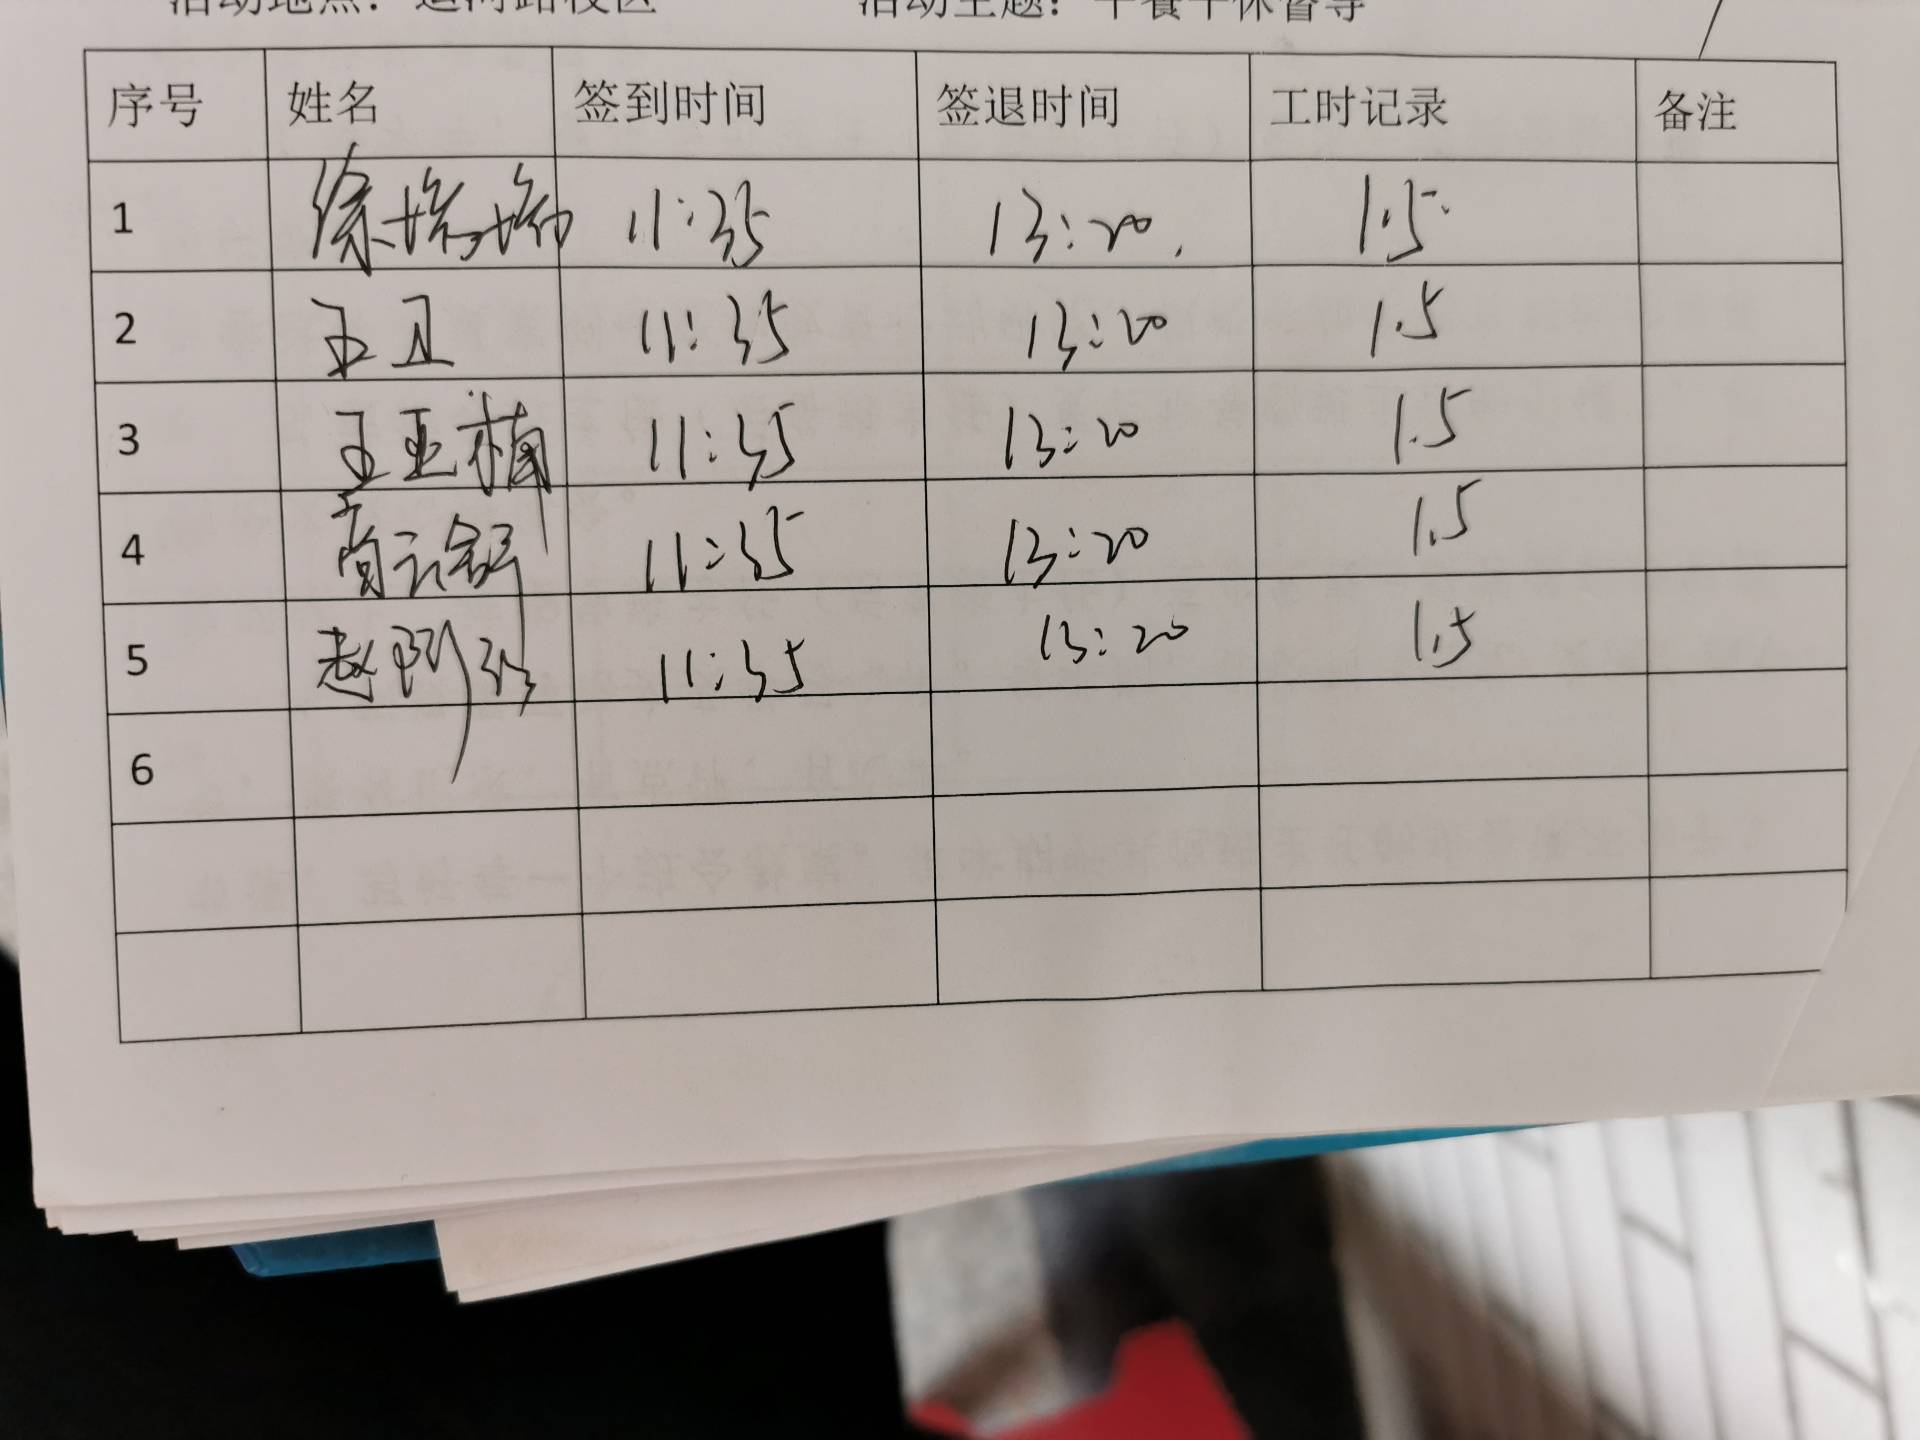 活动地点：运河路校区 活动主题：午餐午休督导
序号 姓名 签到时间 签退时间 工时记录 备注
1 徐 11:35 13:20. 1.5
2 王卫 11:35 13:20 1.5
3 王亚楠 11:35 13:20 1.5
4 11:35 13:20 1.5
5 赵 11:35 13:20 1.5
6